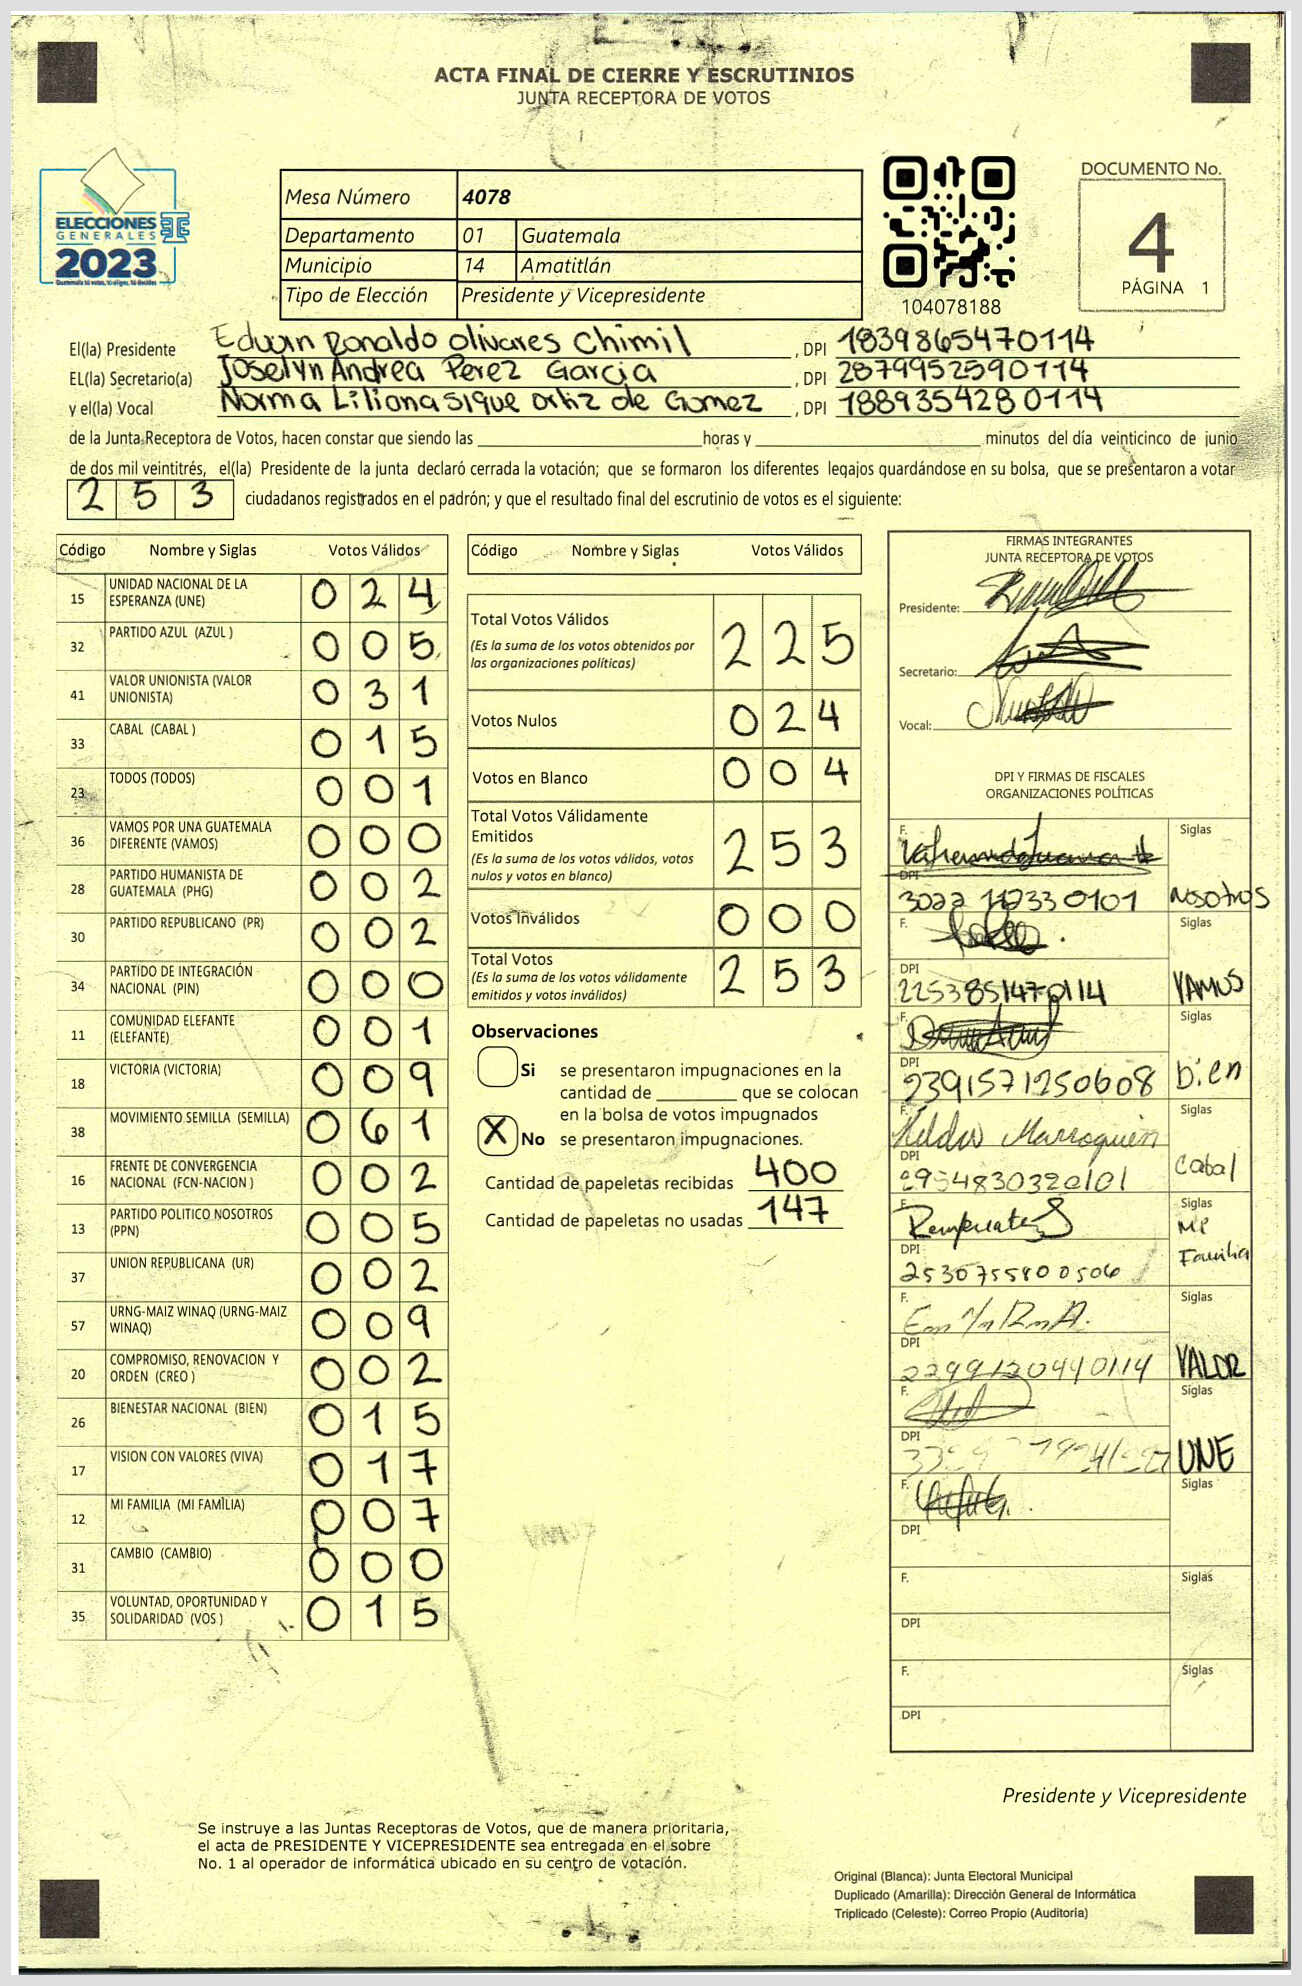 ACTA FINAL DE CIERRE Y ESCRUTINIOS
JUNTA RECEPTORA DE VOTOS
ELECCIONES
GENERALES
2023
Mesa Número 4078
Departamento 01 Guatemala
Municipio 14 Amatitlán
Tipo de Elección Presidente y Vicepresidente
104078188
DOCUMENTO No.
4
PÁGINA 1
El(la) Presidente Edwin Ronaldo Olivares Chimil , DPI 1839865470114
EL(la) Secretario(a) Joselyn Andrea Perez Garcia , DPI 2879952590114
y el(la) Vocal Norma Liliana Sique Ortiz de Gomez , DPI 1889354280114
de la Junta Receptora de Votos, hacen constar que siendo las ____ horas y ____ minutos del día veinticinco de junio
de dos mil veintitrés, el(la) Presidente de la junta declaró cerrada la votación; que se formaron los diferentes legajos guardándose en su bolsa, que se presentaron a votar
253 ciudadanos registrados en el padrón; y que el resultado final del escrutinio de votos es el siguiente:
Código Nombre y Siglas Votos Válidos
15 UNIDAD NACIONAL DE LA ESPERANZA (UNE) 024
32 PARTIDO AZUL (AZUL ) 005
41 VALOR UNIONISTA (VALOR UNIONISTA) 031
33 CABAL (CABAL ) 015
23 TODOS (TODOS) 001
36 VAMOS POR UNA GUATEMALA DIFERENTE (VAMOS) 000
28 PARTIDO HUMANISTA DE GUATEMALA (PHG) 002
30 PARTIDO REPUBLICANO (PR) 002
34 PARTIDO DE INTEGRACIÓN NACIONAL (PIN) 000
11 COMUNIDAD ELEFANTE (ELEFANTE) 001
18 VICTORIA (VICTORIA) 009
38 MOVIMIENTO SEMILLA (SEMILLA) 061
16 FRENTE DE CONVERGENCIA NACIONAL (FCN-NACION ) 002
13 PARTIDO POLITICO NOSOTROS (PPN) 005
37 UNION REPUBLICANA (UR) 002
57 URNG-MAIZ WINAQ (URNG-MAIZ WINAQ) 009
20 COMPROMISO, RENOVACION Y ORDEN (CREO ) 002
26 BIENESTAR NACIONAL (BIEN) 015
17 VISION CON VALORES (VIVA) 017
12 MI FAMILIA (MI FAMILIA) 007
31 CAMBIO (CAMBIO) 000
35 VOLUNTAD, OPORTUNIDAD Y SOLIDARIDAD (VOS ) 015
Código Nombre y Siglas Votos Válidos
Total Votos Válidos 225
(Es la suma de los votos obtenidos por
las organizaciones políticas)
Votos Nulos 024
Votos en Blanco 004
Total Votos Válidamente
Emitidos 253
(Es la suma de los votos válidos, votos
nulos y votos en blanco)
Votos Inválidos 000
Total Votos 253
(Es la suma de los votos válidamente
emitidos y votos inválidos)
Observaciones
Si se presentaron impugnaciones en la
cantidad de ____ que se colocan
en la bolsa de votos impugnados
X No se presentaron impugnaciones.
Cantidad de papeletas recibidas 400
Cantidad de papeletas no usadas 147
FIRMAS INTEGRANTES
JUNTA RECEPTORA DE VOTOS
Presidente:
Secretario:
Vocal:
DPI Y FIRMAS DE FISCALES
ORGANIZACIONES POLÍTICAS
F. Siglas
DPI
Nosotros
F. Siglas
DPI
2253851470114 VAMOS
F. Siglas
DPI
2391571250608 bien
F. Hilda Marroquin Siglas
DPI
2954830320101 Cabal
F. Siglas
Mi
DPI Familia
2530755800506
F. Siglas
DPI
2299120440114 VALOR
F. Siglas
DPI
UNE
F. Siglas
DPI
F. Siglas
DPI
F. Siglas
DPI
Presidente y Vicepresidente
Se instruye a las Juntas Receptoras de Votos, que de manera prioritaria,
el acta de PRESIDENTE Y VICEPRESIDENTE sea entregada en el sobre
No. 1 al operador de informática ubicado en su centro de votación.
Original (Blanca): Junta Electoral Municipal
Duplicado (Amarilla): Dirección General de Informática
Triplicado (Celeste): Correo Propio (Auditoria)